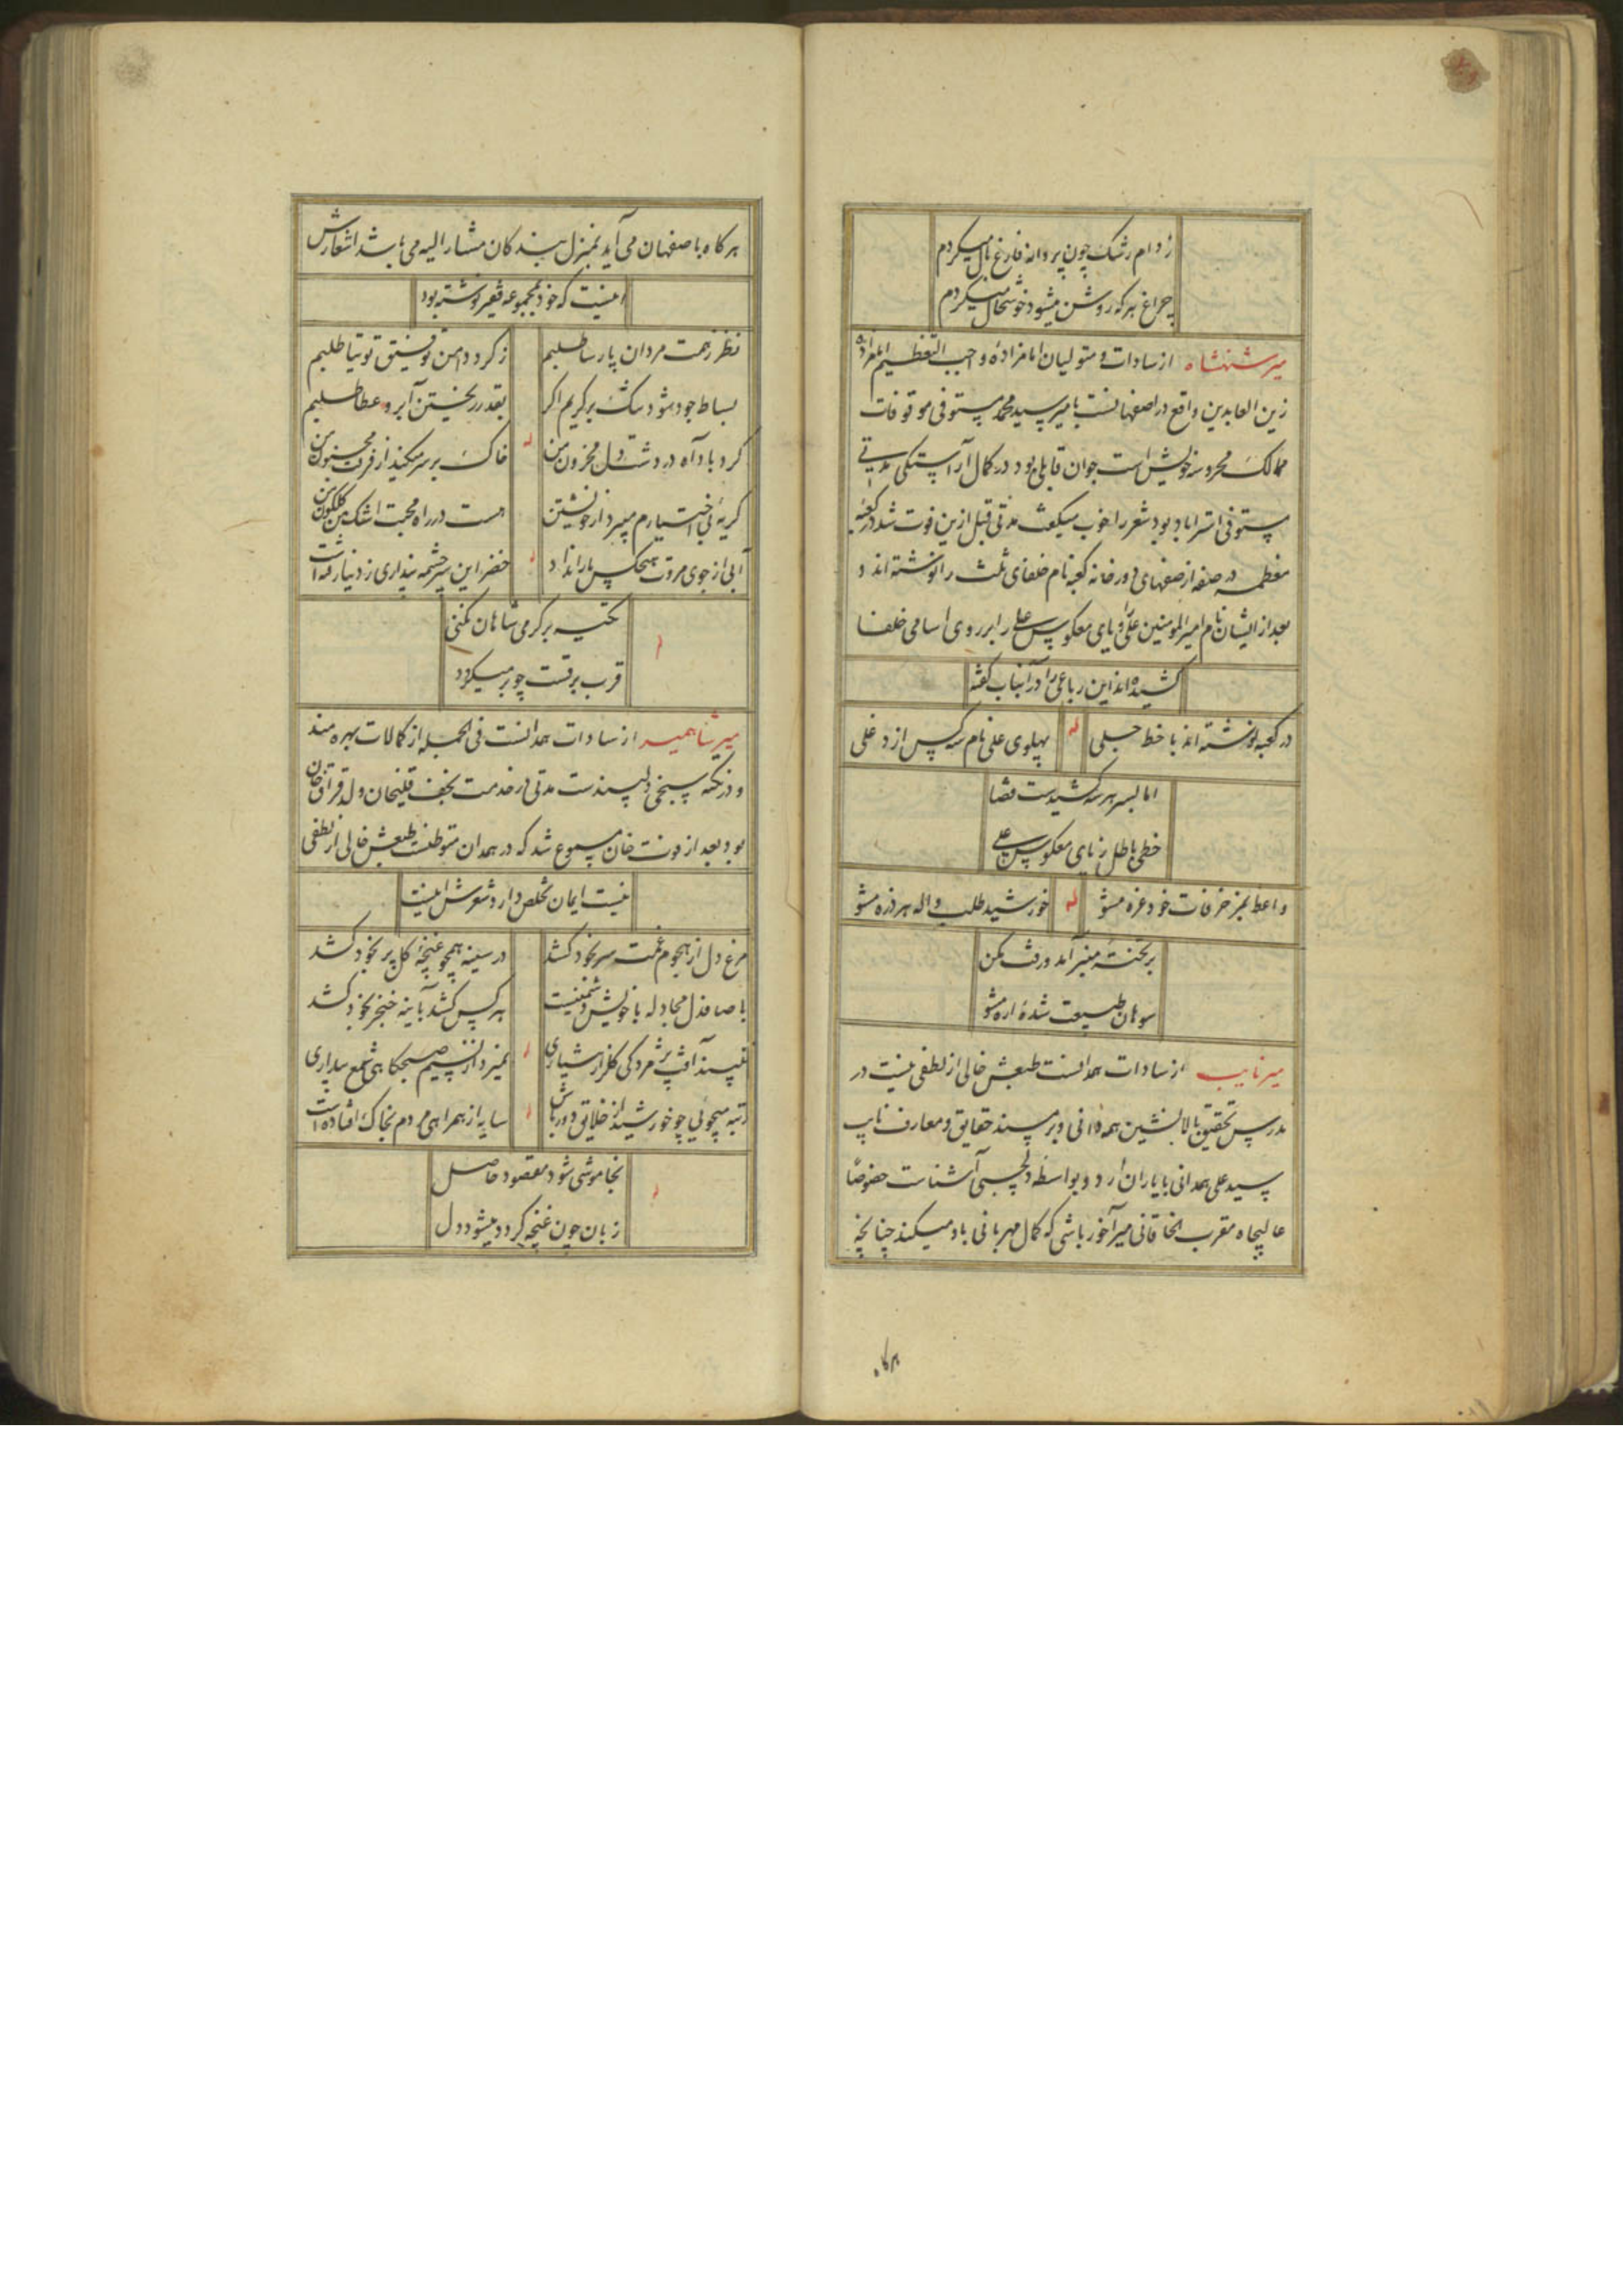 ز دام رشک چون پروانه فارغ بال میکردم
چراغ هر که روشن میشود خوشحال میکردم
میر شهنشاه از سادات و متولیان امامزاده واجب التعظیم امامزاده
زین العابدین واقع در اصفهانست با میر سید محمد مستوفی موقوفات
ممالک محروسه خویش است جوان قابلی بود در کمال آراستگی مدتی
مستوفی استراباد بود شعر را خوب میگفت مدتی قبل ازین فوت شد در کعبه
معظمه در صفه از صفهای دور خانه کعبه نام خلفای ثلث را نوشته اند و
بعد از ایشان نام امیرالمومنین علی و یای معکوس علی را بر روی اسامی خلفا
کشیده اند این رباعی را در آنباب گفته
در کعبه نوشته اند با خط جلی
له
پهلوی علی نام سه کس از دغلی
اما بسر هر سه کشیدست قضا
خطی باطل ز یای معکوس علی
واعظ بمزخرفات خود غره مشو
له
خورشید طلب واله هر ذره مشو
بر تخته منبر آمد ورفت مکن
سوهان طبیعت شده اره مشو
میر نایب از سادات همدانست طبعش خالی از لطفی نیست در
مدرس تحقیق بالانشین همه دانی و بر مسند حقایق و معارف نایب
سید علی همدانی با یاران درد و بواسطه دلچسبی آشناست خصوصا
عالیجاه مقرب الخاقانی میرآخور باشی که کمال مهربانی باو میکند چنانچه
هرگاه
هر گاه باصفهان می آید بمنزل بندگان مشار الیه می باشد اشعارش
اینست که خود بمجموعه فقیر نوشته بود
نظر ز همت مردان پارسا طلبیم
ز گرد دامن توفیق توتیا طلبیم
بساط جود شود تنگ بر کریم اگر
بقدر ریختن آبرو عطا طلبیم
گردباد آه در دشت دل محزون من
له
خاک بر سر میکند از فرقت مجنون من
گریه بی اختیارم میبرد از خویشتن
هست در راه محبت اشک من گلگون من
آبی از جوی مروت هیچکس باز انداد
له
خضر این سرچشمه پنداری ز دنیا رفته است
تکیه بر گرمی شاهان نکنی
له
قرب برقست چو بر میگردد
میر شاهمیر از سادات همدانست فی الجمله از کمالات بهره مند
و در نکته سنجی دلپسندست مدتی در خدمت نجف قلیخان ولد قزاق خان
بود بعد از فوت خان مسموع شد که در همدان متوطنست طبعش خالی از لطفی
نیست ایمان تخلص دارد شعرش اینست
مرغ دل از هجوم غمت سر بخود کشد
در سینه همچو غنچه گل پر بخود کشد
با صاف دل مجادله با خویش دشمنیست
هر کس کشد بآینه خنجر بخود کشد
له
نمیرد از نسیم صبحگاهی شمع بیداری
رتبه میجویی چو خورشید از خلایق دور باش
له
سایه از همراهی مردم بخاک افتاده است
بخاموشی شود مقصود حاصل
له
زبان چون غنچه گردد میشود دل